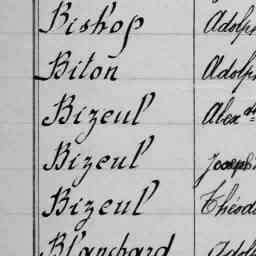 Bishop Adolph
Biton Adolph
Bizeul Alexdre
Bizeul Joseph
Bizeul Théodo
Blanchard Adolp